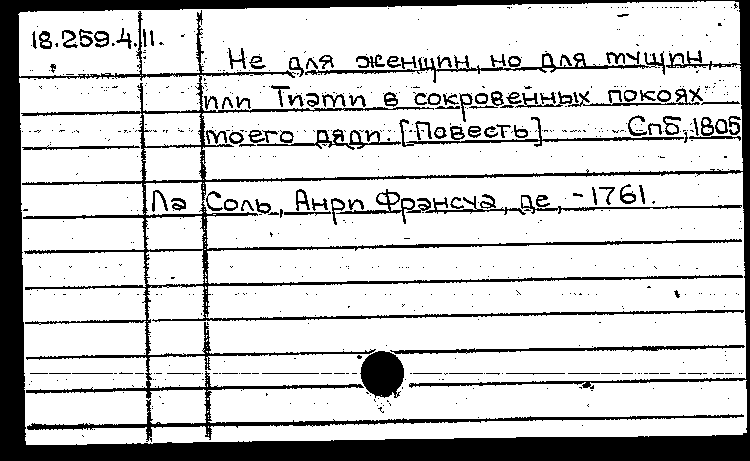 18.259.4.11.
Не для женщин, но для мущин,
или Тиэти в сокровенных покоях
моего дяди. [Повесть] СПб, 1805
Ла Соль, Анри Франсуа, де, - 1761.